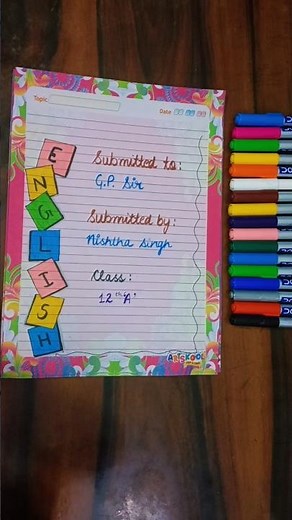 Topic:
Date
E
N
G
L
I
S
H
Submitted to:
G.P. Sir
Submitted by:
Nishtha Singh
Class:
12th 'A'
ARTSKOOL